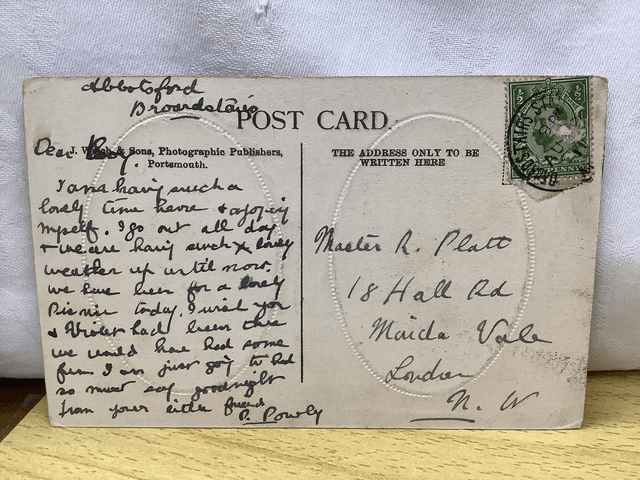 Abbotsford
Broardstairs
POST CARD
Dear
J. W & Sons, Photographic Publishers,
Portsmouth.
THE ADDRESS ONLY TO BE
WRITTEN HERE
I am having such a
lovely time here + enjoying
myself. I go out all day
+ we are having such lovely
weather up until now.
we have been for a lovely
Picnic today. I wish you
+ Violet had been there
we would have had some
fun I am just going to bed
so must say goodnight
from your little friend
Master R. Platt
18 Hall Rd
Maida Vale
London
N. W